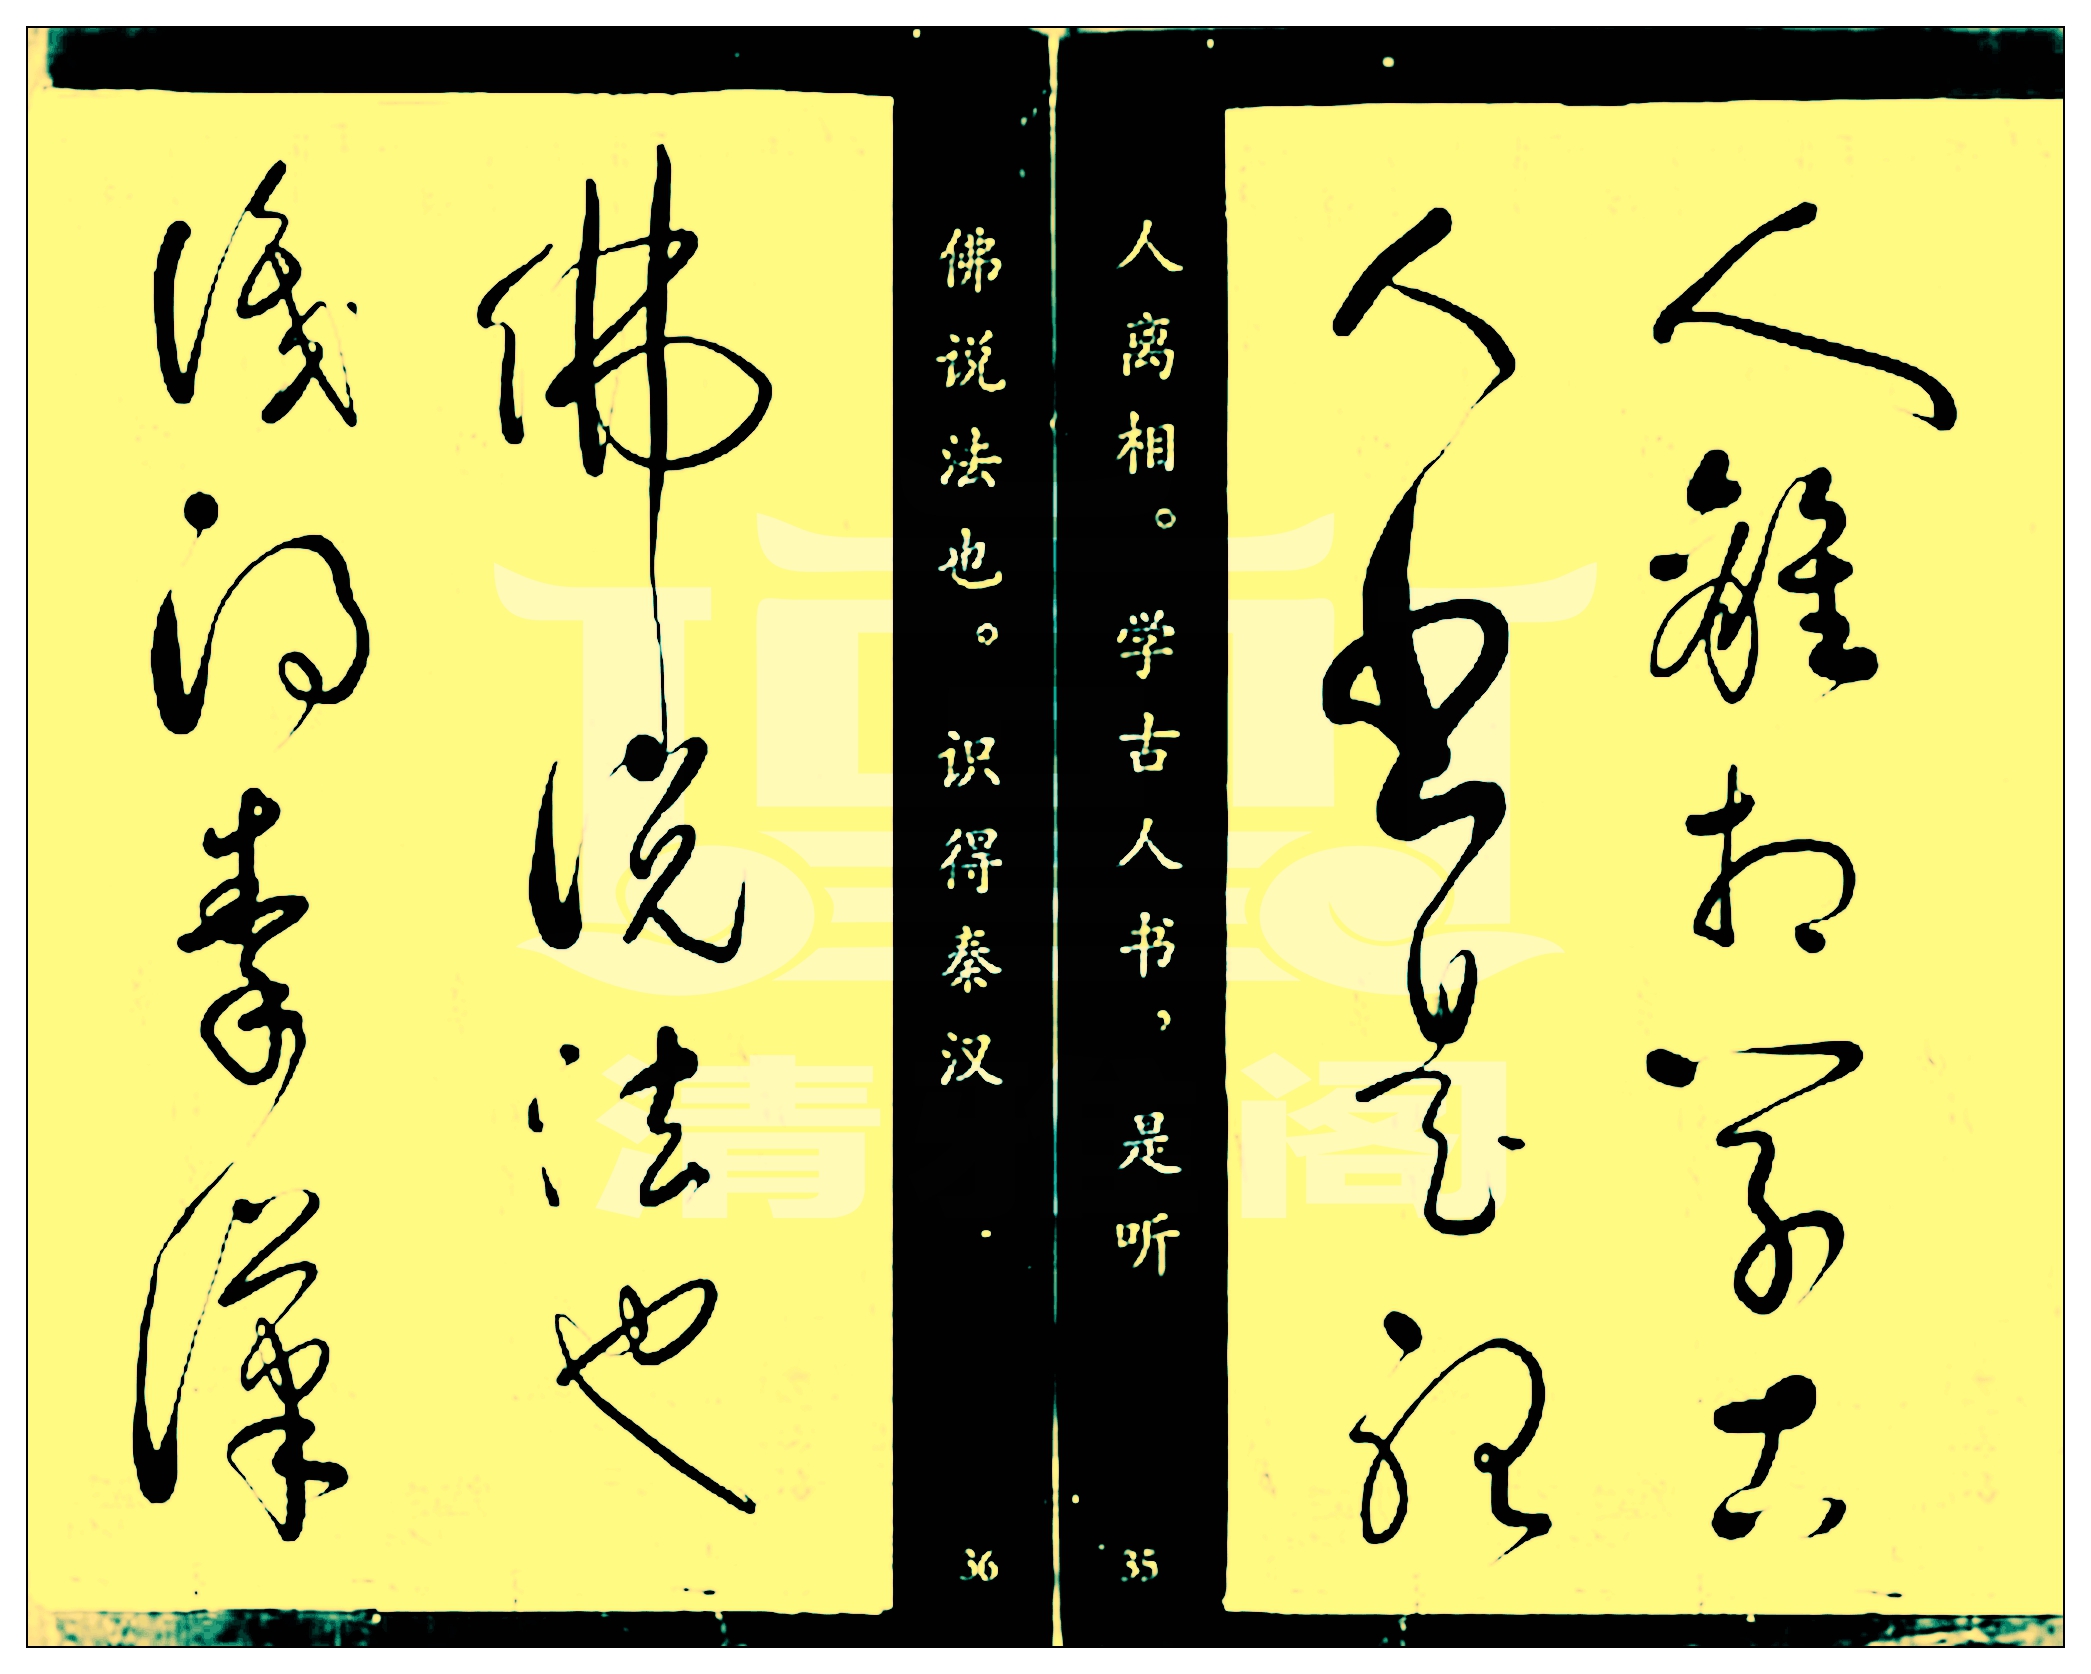 人離相學古
人書是聽
人离相。学古人书，是听
35
佛说法也。识得秦汉
36
佛說法也
識得秦漢
清 阁